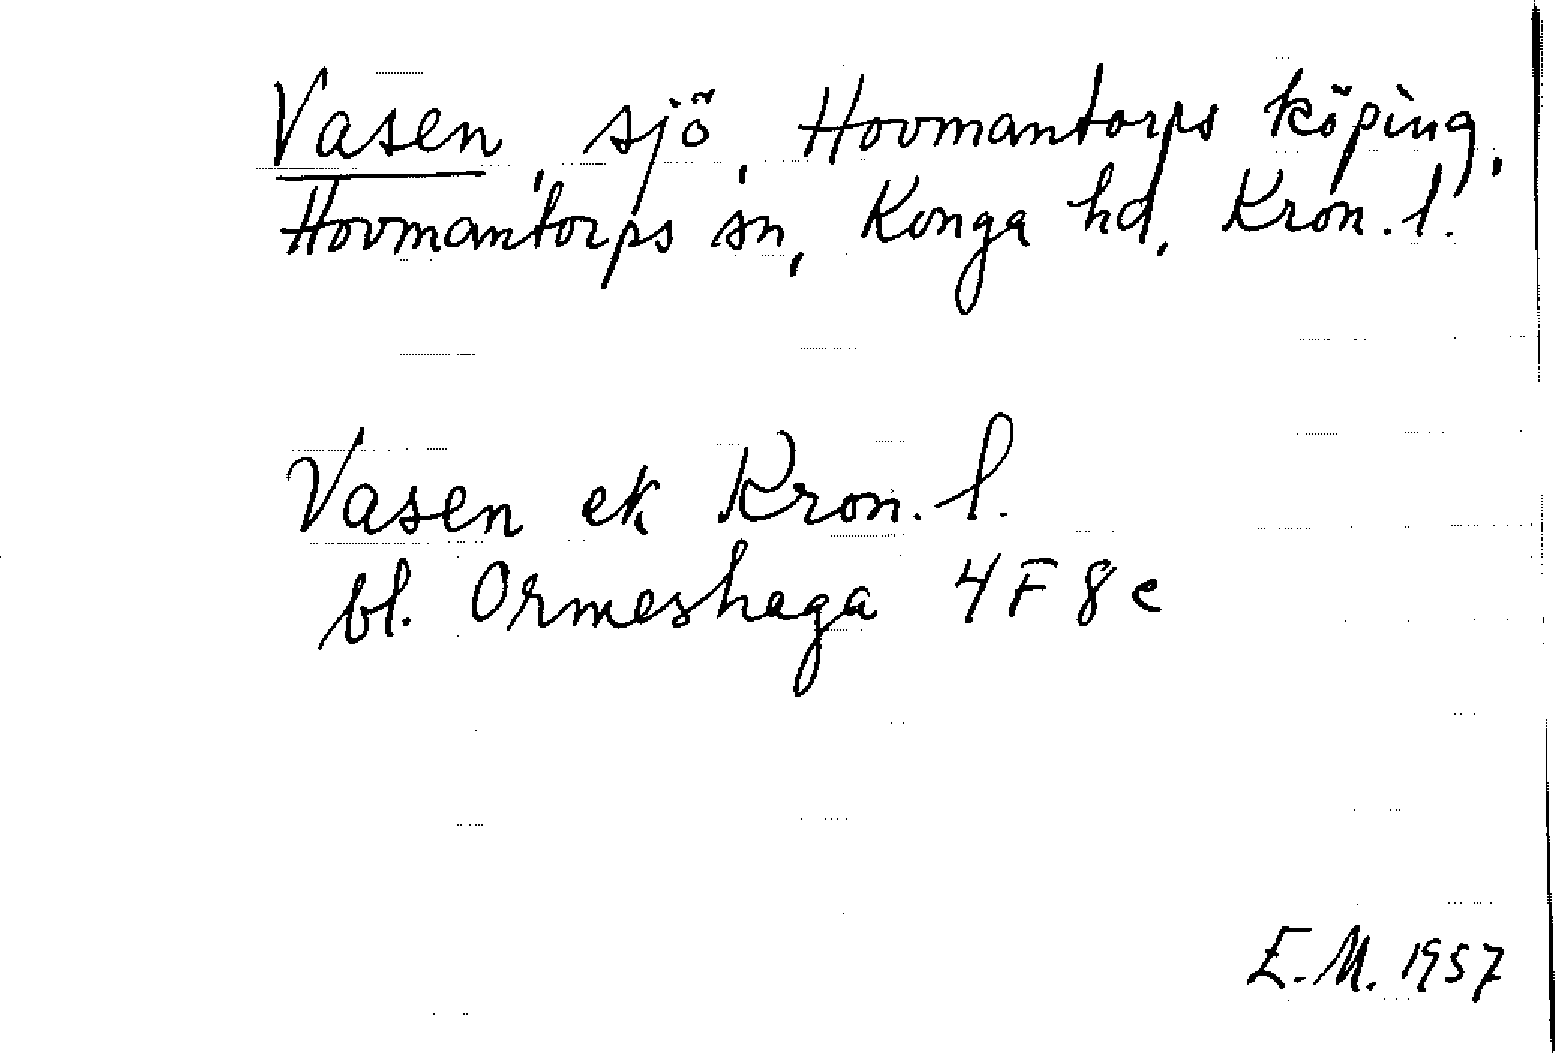 Vasen, sjö, Hovmantorps köping,
Hovmantorps sn, Konga hd, Kron. l.
Vasen ek Kron. l.
bl. Ormeshaga 4F 8e
E.M. 1957